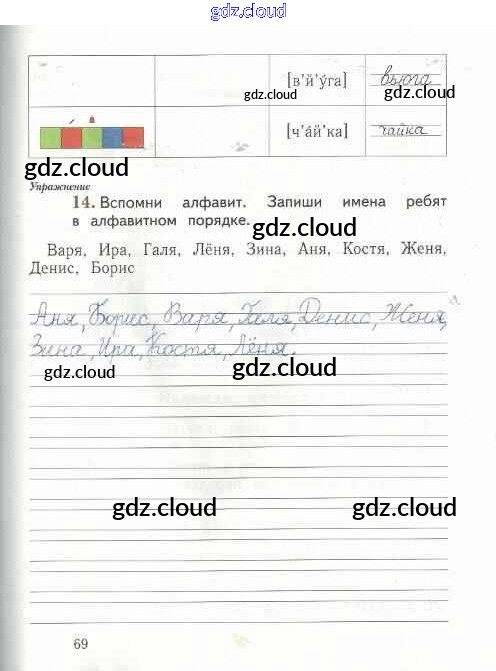 gdz.cloud
[в'й'у́га] вьюга
gdz.cloud gdz.cloud
[ч'а́й'ка] чайка
gdz.cloud
Упражнение
14. Вспомни алфавит. Запиши имена ребят
в алфавитном порядке.
gdz.cloud gdz.cloud
Варя, Ира, Галя, Лёня, Зина, Аня, Костя, Женя,
Денис, Борис
Аня, Борис, Варя, Галя, Денис, Женя,
Зина, Ира, Костя, Лёня.
gdz.cloud gdz.cloud
gdz.cloud gdz.cloud
69
gdz.cloud